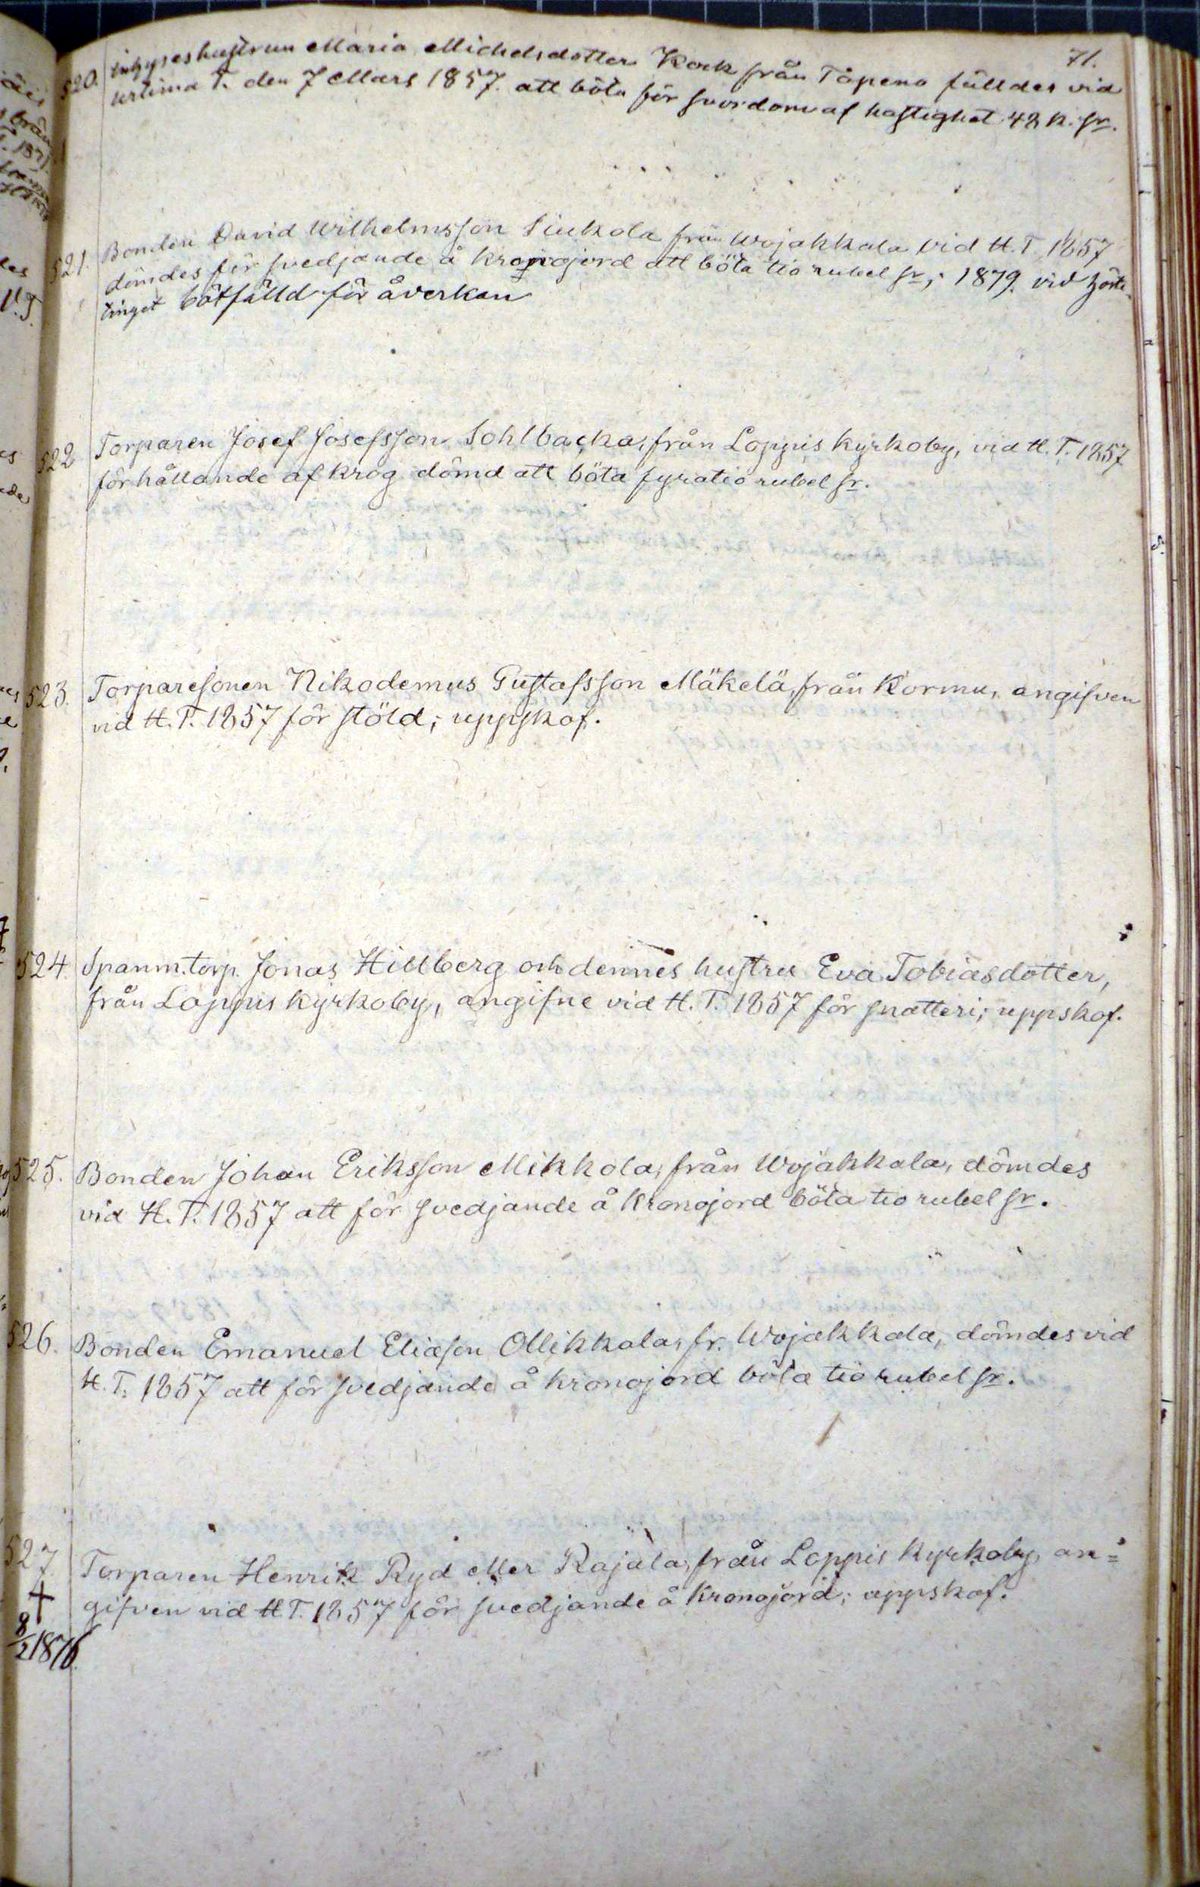 71.
520. Inhyseshustrun Maria Michelsdotter Kock från Topeno fälldes vid
urtima T. den 7 Mars 1857. att böta för svordom af hastighet 48 k. sr.
521. Bonden David Wilhelmsson Siukola från Wojakkala vid H.T. 1857
dömdes för svedjande å kronojord att böta tio rubel sr; 1879. vid höste
tinget botfälld för åverkan
522 Torparen Josef Josefsson Sohlbacka, från Loppis Kyrkoby, vid H.T. 1857
för hållande af krog dömd att böta fyratio rubel sr.
523. Torparesonen Nikodemus Gustafsson Mäkelä, från Kormu, angifven
vid H.T. 1857 för stöld; uppskof.
524. Spanm.torp. Jonas Hillberg och dennes hustru Eva Tobiasdotter,
från Loppis Kyrkoby, angifne vid H.T. 1857 för snatteri; uppskof.
525. Bonden Johan Eriksson Mikkola, från Wojakkala, dömdes
vid H.T. 1857 att för svedjande å Kronojord böta tio rubel sr.
526. Bonden Emanuel Eliasson Ollikkala, fr. Wojakkala, dömdes vid
H.T. 1857 att för svedjande å kronojord böta tio rubel sr.
527. Torparen Henrik Ryd eller Rajala, från Loppis Kyrkoby, an=
gifven vid H.T. 1857 för svedjande å Kronojord; uppskof.
+
8/2 1876.